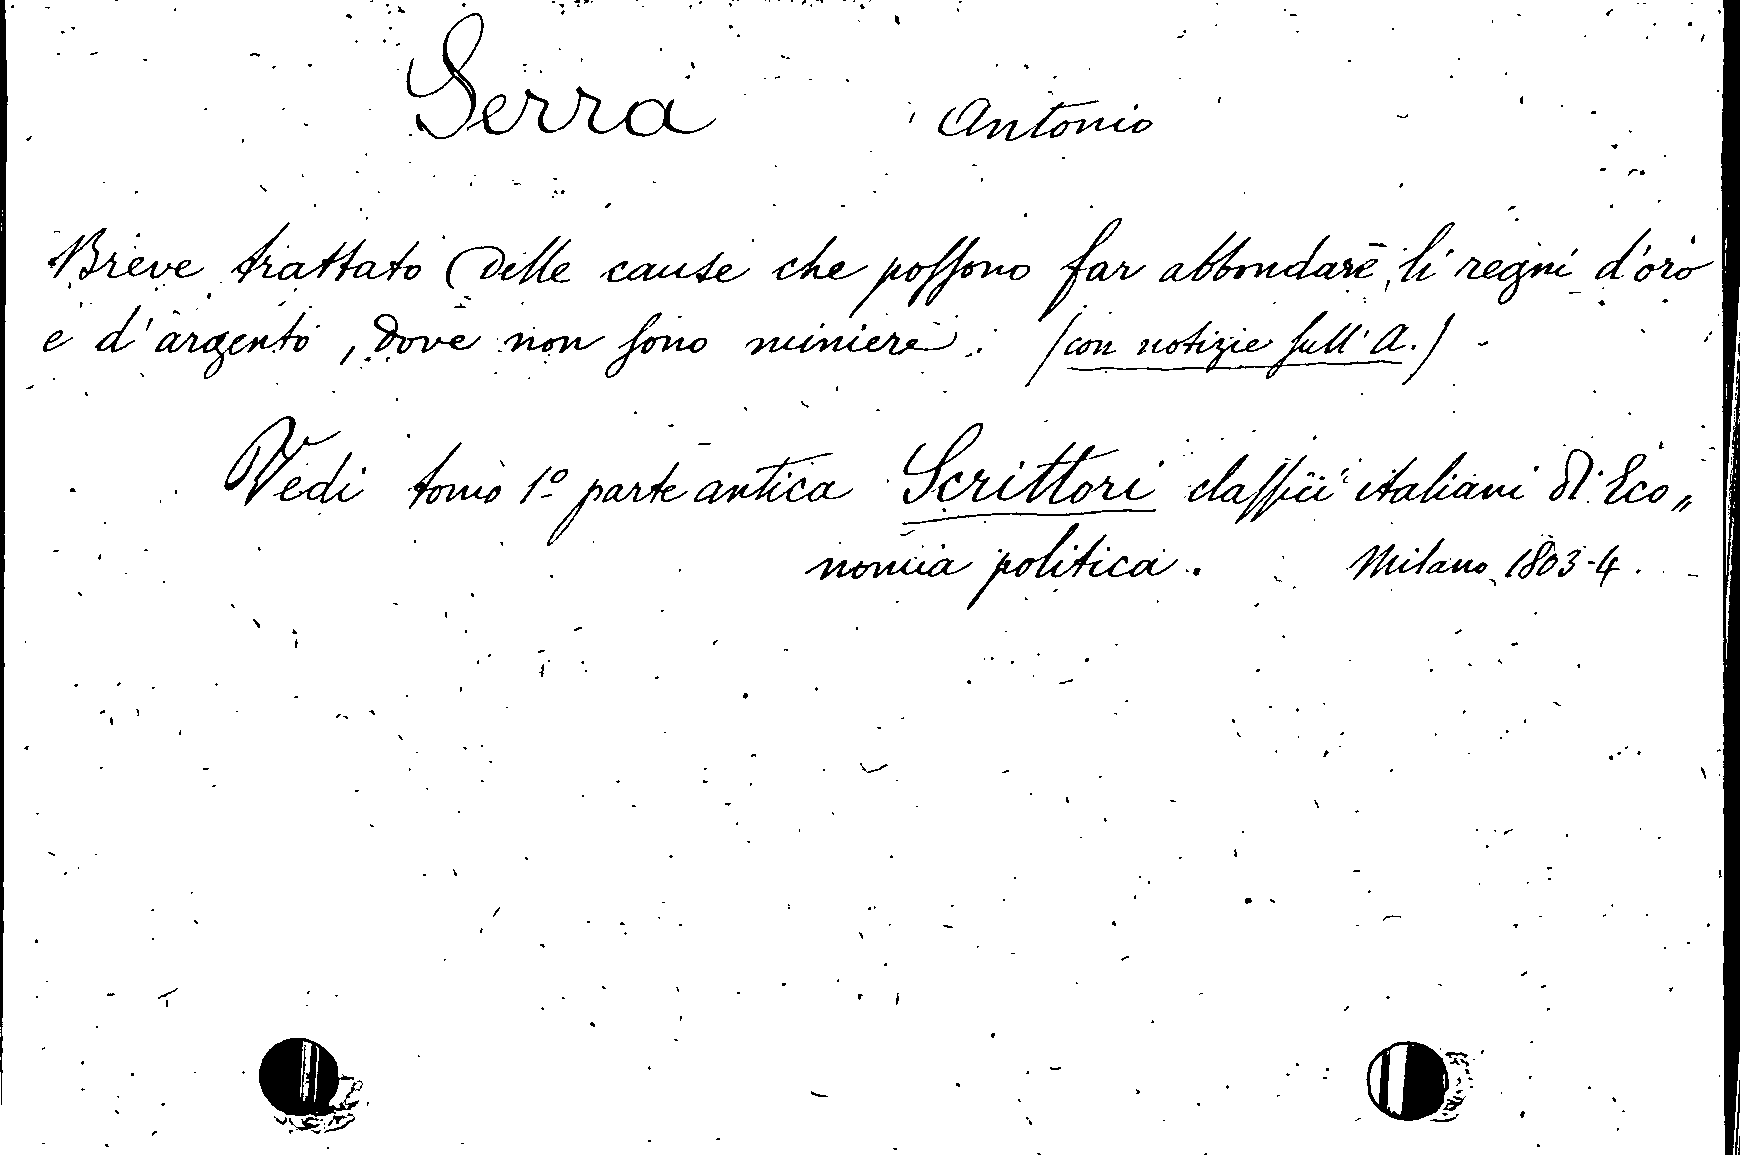 Serra Antonio
Breve trattato delle cause che possono far abbondare li regni d'oro
e d'argento, dove non sono miniere. (con notizie sull'A.)
Vedi tomo 1º parte antica Scrittori classici italiani di Eco„
nomia politica. Milano 1803-4.